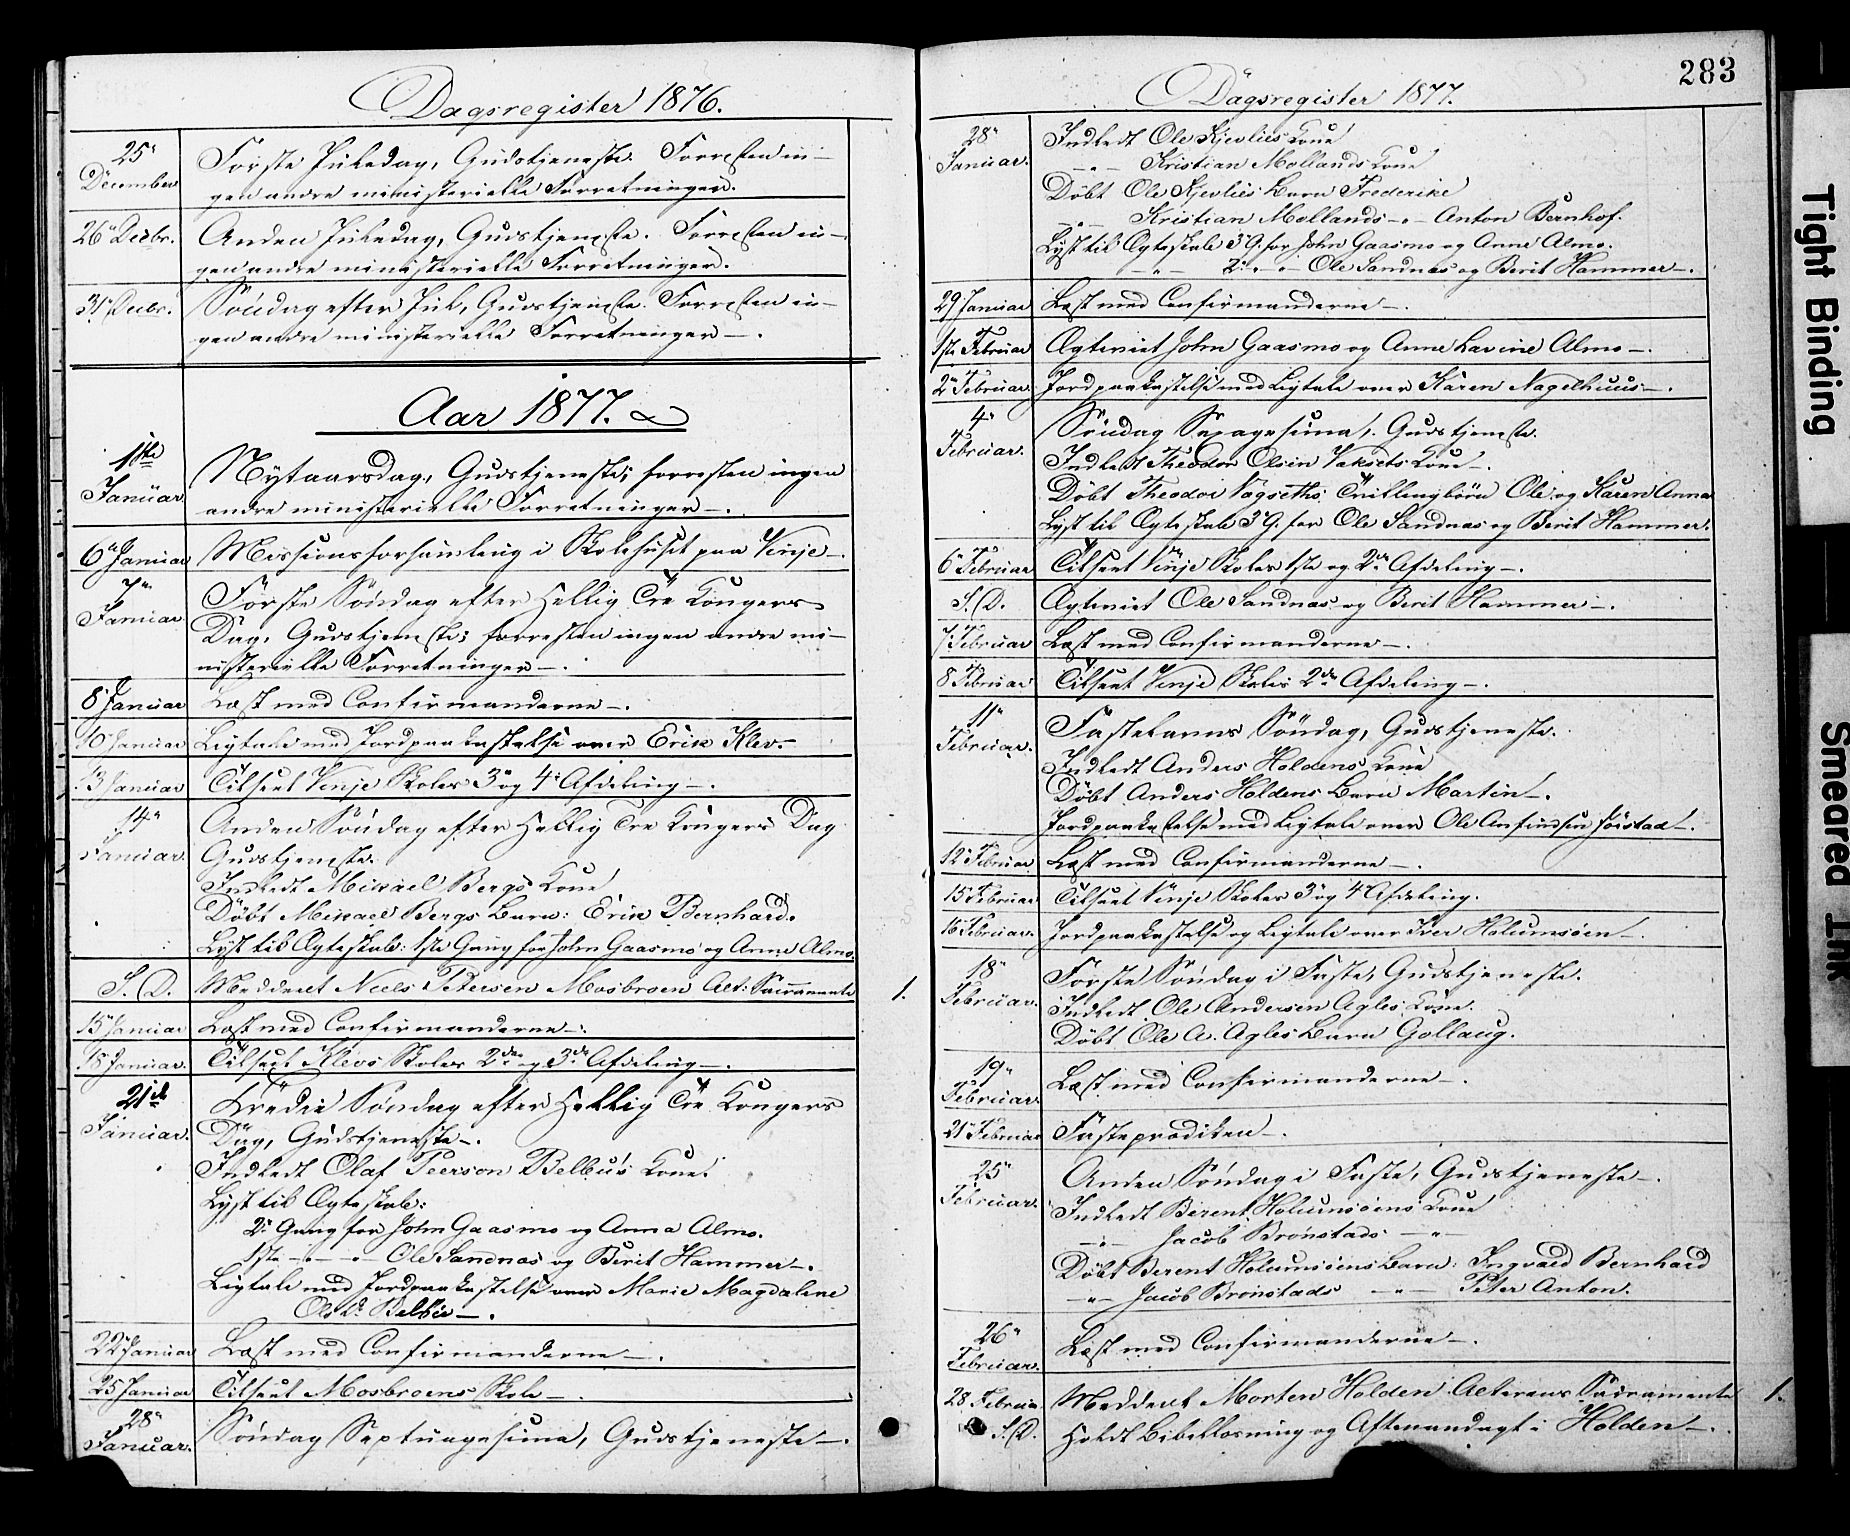 Dagsregister 1876.
25de December
Første Juledag, Gudstjeneste. Forresten in-
gen andre ministerielle Forretninger.
26de Decbr. Anden Juledag, Gudstjeneste. Forresten in-
gen andre ministerielle Forretninger.
31te Decbr. Søndag efter Jul, Gudstjeneste. Forresten in-
gen andre ministerielle Forretninger —.
Aar 1877.
1ste Januar
Nytaarsdag, Gudstjeneste, forresten ingen
andre ministerielle Forretninger —.
6te Januar Missionsforsamling i Skolehuset paa Vinje —.
7de Januar
Første Søndag efter Hellig Tre Kongers
Dag, Gudstjeneste; forresten ingen andre mi-
nisterielle Forretninger —.
8de Januar Læst med Confirmanderne —.
10 Januar Ligtale med Jordpaakastelse over Erik Klev. —
13 Januar Tilseet Vinje Skoles 3de og 4de Afdeling —.
14de Januar
Anden Søndag efter Hellig Tre Kongers Dag
Gudstjeneste.
Indledt Mikael Bergs Kone
Døbt Mikael Bergs Barn: Erik Bernhard.
Lyst til Ægteskab: 1ste Gang for John Gaasmo og Anne Almo.
S. D. Meddeelt Niels Petersen Mosbroen Alt: Sacramente 1.
15 Januar Læst med Confirmanderne —.
18 Januar. Tilseet Klevs Skoles 2den og 3die Afdeling —.
21de Januar.
Tredie Søndag efter Hellig Tre Kongers
Dag, Gudstjeneste —.
Indledt Olaf Peerson Belbu's Kone.
Lyst til Ægteskab:
2den Gang for John Gaasmo og Anna Almo.
1ste — " — " — Ole Sandnæs og Berit Hammer —.
Ligtale med Jordpaakastelse over Marie Magdaline
Olsdr. Belbu —.
22 Januar Læst med Confirmanderne —.
25 Januar Tilseet Mosbroens Skole —.
28de Januar.
Søndag Septuagesima, Gudstjeneste —.
283
Dagsregister 1877.
28de Januar.
Indledt Ole Kjevlies Kone
— " — Kristian Mollands Kone
Døbt Ole Kjevlies Barn Frederike
— " — Kristian Mollands — " — Anton Bernhof.
Lyst til Ægteskab 3de G. for John Gaasmo og Anne Almo.
— " — 2den " — " — Ole Sandnæs og Berit Hammer —.
29 Januar Læst med Confirmanderne —.
1ste Februar Ægteviet John Gaasmo og Anne Lavine Almo —.
2den Februar Jordpaakastelse med Ligtale over Karen Nagelhuus —.
4de Februar.
Søndag Sexagesima, Gudstjeneste.
Indledt Theodor Olsen Vaksets Kone —.
Døbt Theodor Vagseths Tvillingbørn Ole og Karen Anna
Lyst til Ægteskab 3de G. for Ole Sandnæs og Berit Hammer.
6te Februar Tilseet Vinje Skoles 1ste og 2den Afdeling —.
S. D. Ægteviet Ole Sandnæs og Berit Hammer —.
7de Februar Læst med Confirmanderne —.
8 Februar Tilseet Vinje Skoles 2den Afdeling —.
11te Februar.
Fastelavns Søndag, Gudstjeneste.
Indledt Anders Holdens Kone
Døbt Anders Holdens Barn Martin —.
Jordpaakastelse med Ligtale over Ole Anfindsen Jørstad —.
12te Februar Læst med Confirmanderne —.
15 Februar Tilseet Vinje Skoles 3de og 4de Afdeling.
16 Februar. Jordpaakastelse og Ligtale over Iver Holumsøen —.
18de Februar.
Første Søndag i Faste, Gudstjeneste.
Indledt Ole Andersen Agles Kone.
Døbt Ole A. Agles Barn Gollaug.
19de Februar.
Læst med Confirmanderne —.
21de Februar Fasteprædiken —.
25de Februar.
Anden Søndag i Faste, Gudstjeneste —.
Indledt Berent Holumsøens Kone
— " — Jacob Brønstads — " —
Døbt Berent Holumsøens Barn: Ingvald Bernhard
— " — Jacob Brønstads — " — Peter Anton.
26de Februar.
Læst med Confirmanderne —.
28 Februar. Meddeelt Morten Holden Alterens Sacramente 1.
S. D. Holdt Bibellæsning og Aftenandagt i Holden —.
Tight Binding
Smeared Ink